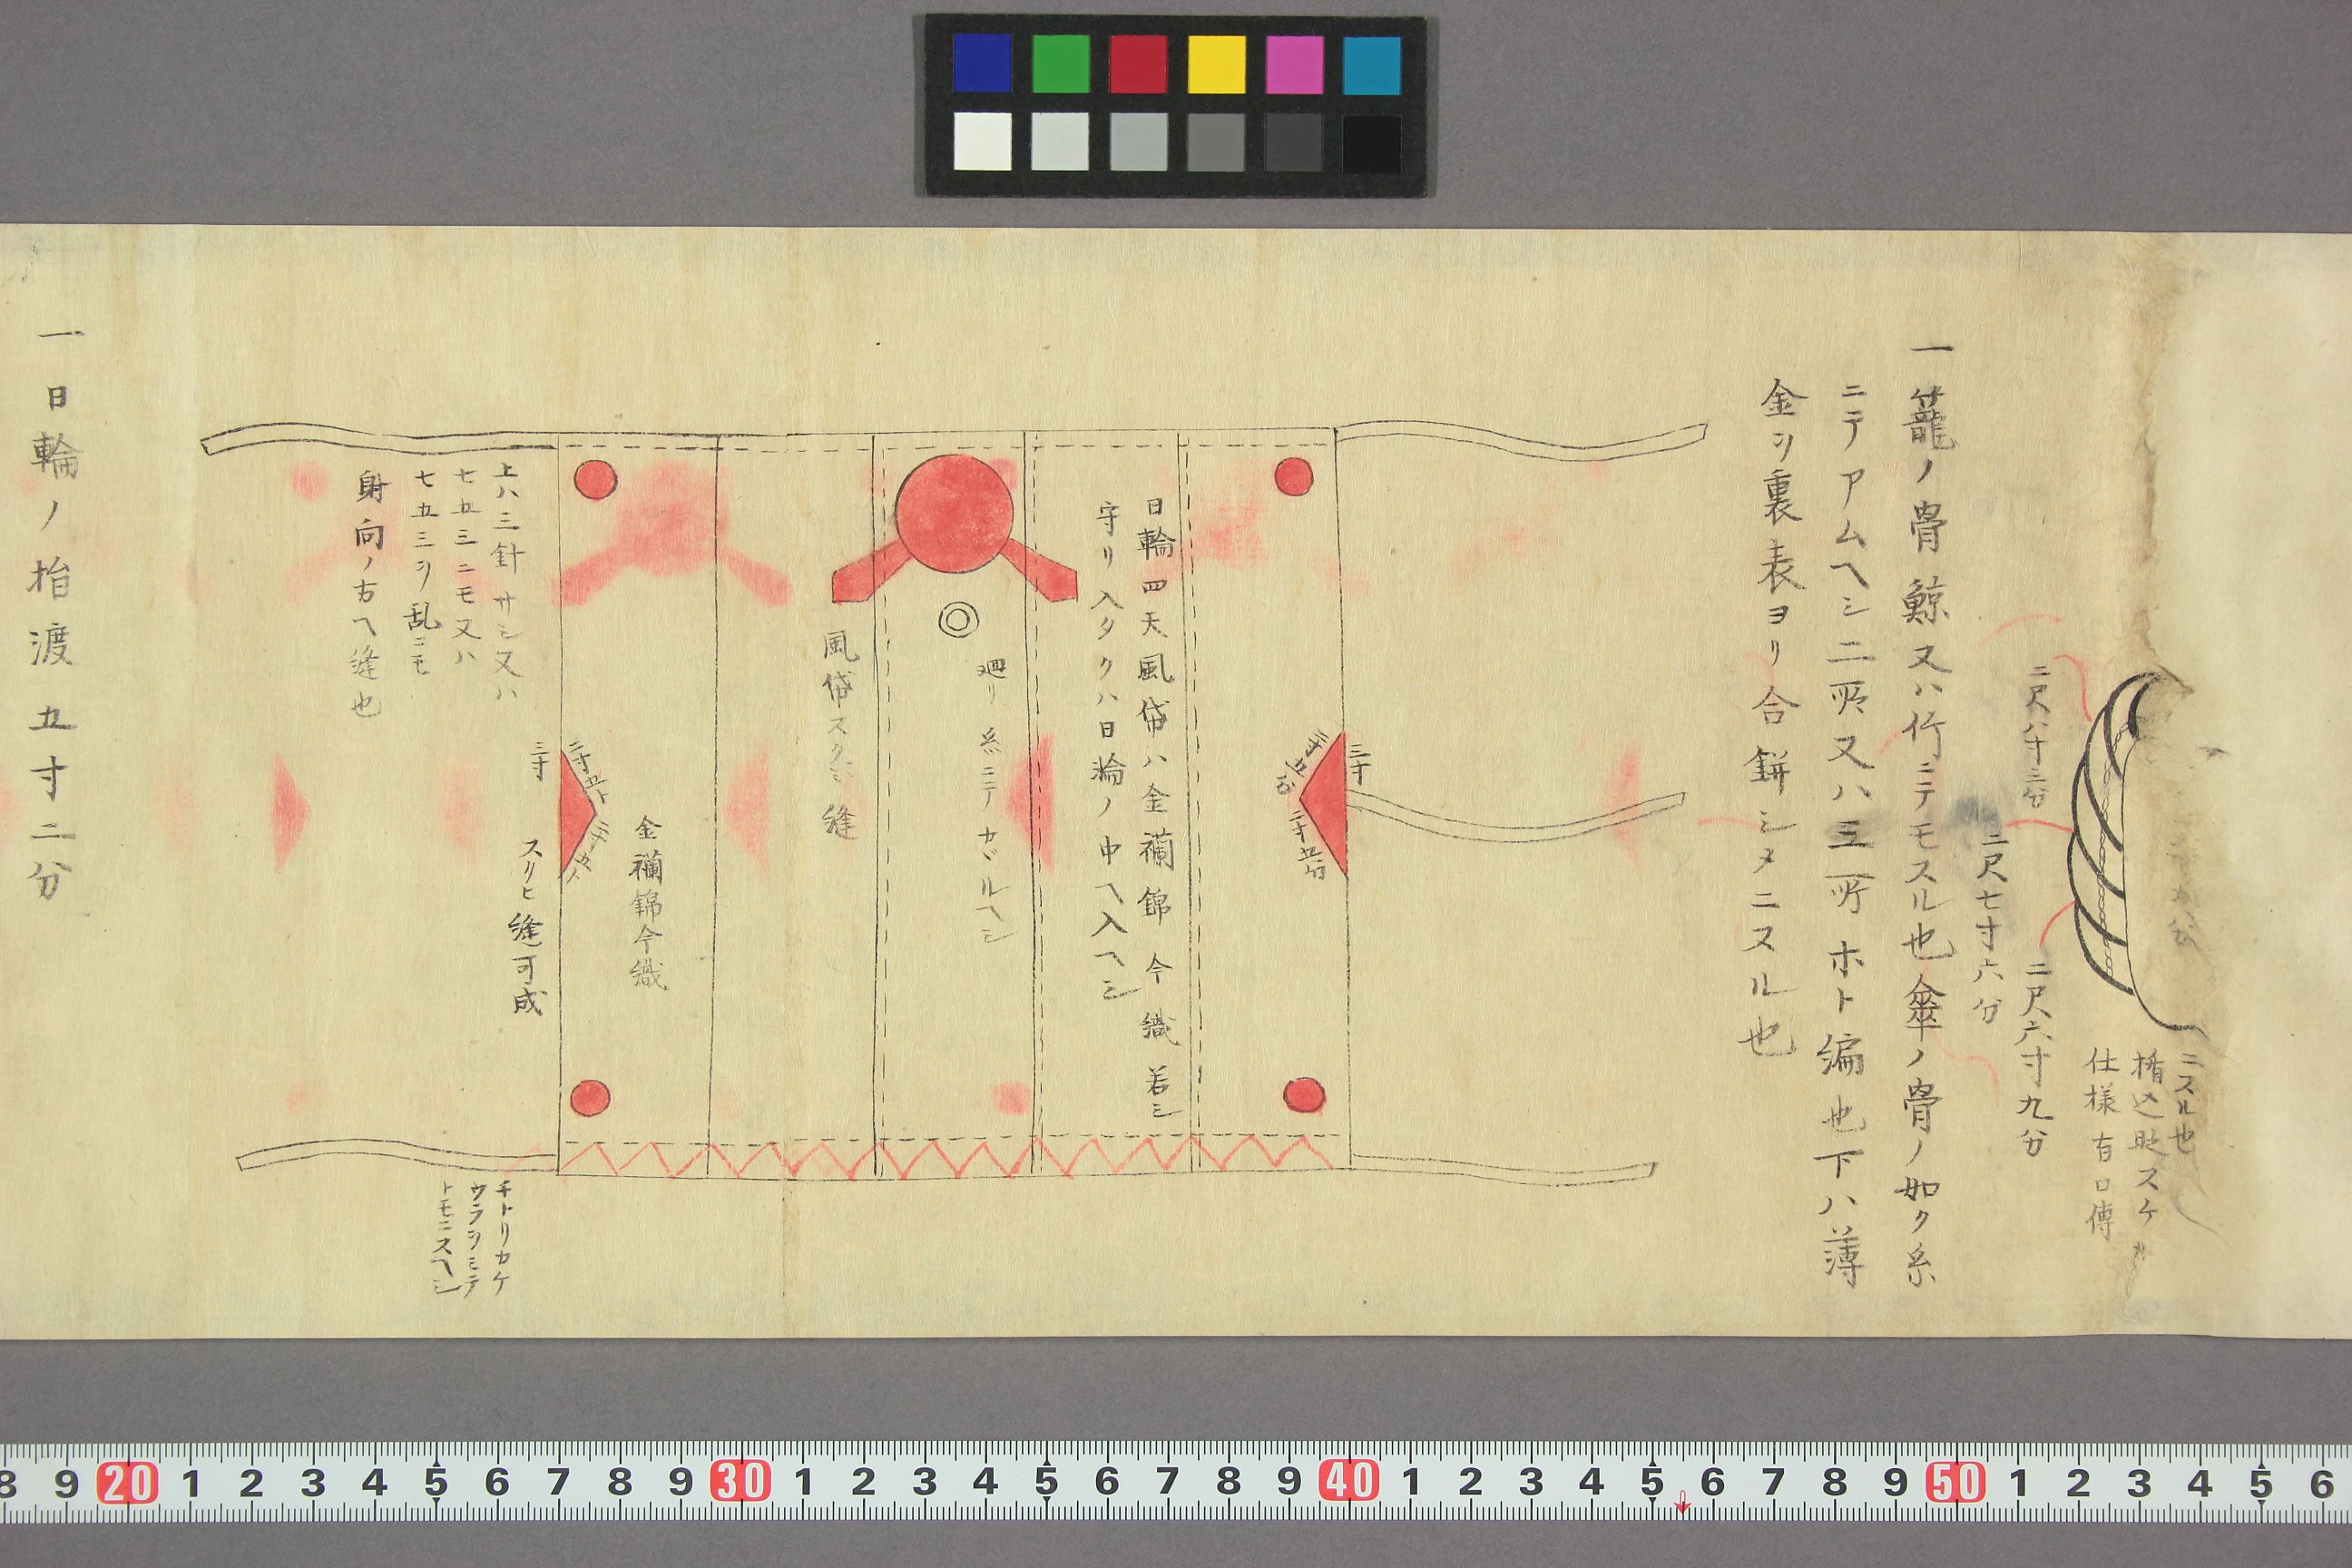 ニスル也
楯込助スケ
仕様有口傳
二尺八寸三分
二尺七寸六分
二尺六寸九分
一籠ノ骨鯨又ハ竹ニテモスル也傘ノ骨ノ如ク糸
ニテアムヘシ二所又ハ三所ホト編也下ハ薄
金ヲ裏表ヨリ合餅シタニスル也
三寸
二寸五分
二寸五分
日輪四天風袋ハ金襴錦今織若シ
守リ入タクハ日輪ノ中ヘ入ヘシ
廻リ糸ニテカヾルヘシ
風袋スクニ縫
金襴錦今織
二寸五分
二寸五分
三寸
スクヒ縫可成
上ハ三針サシ又ハ
七五三ニモ又ハ
七五三ヲ乱ニモ
射向ノ方ヘ縫也
チトリカケ
ウラヲミテ
トモニスヘシ
一日輪ノ指渡五寸二分
8 9 20 1 2 3 4 5 6 7 8 9 30 1 2 3 4 5 6 7 8 9 40 1 2 3 4 5 6 7 8 9 50 1 2 3 4 5 6